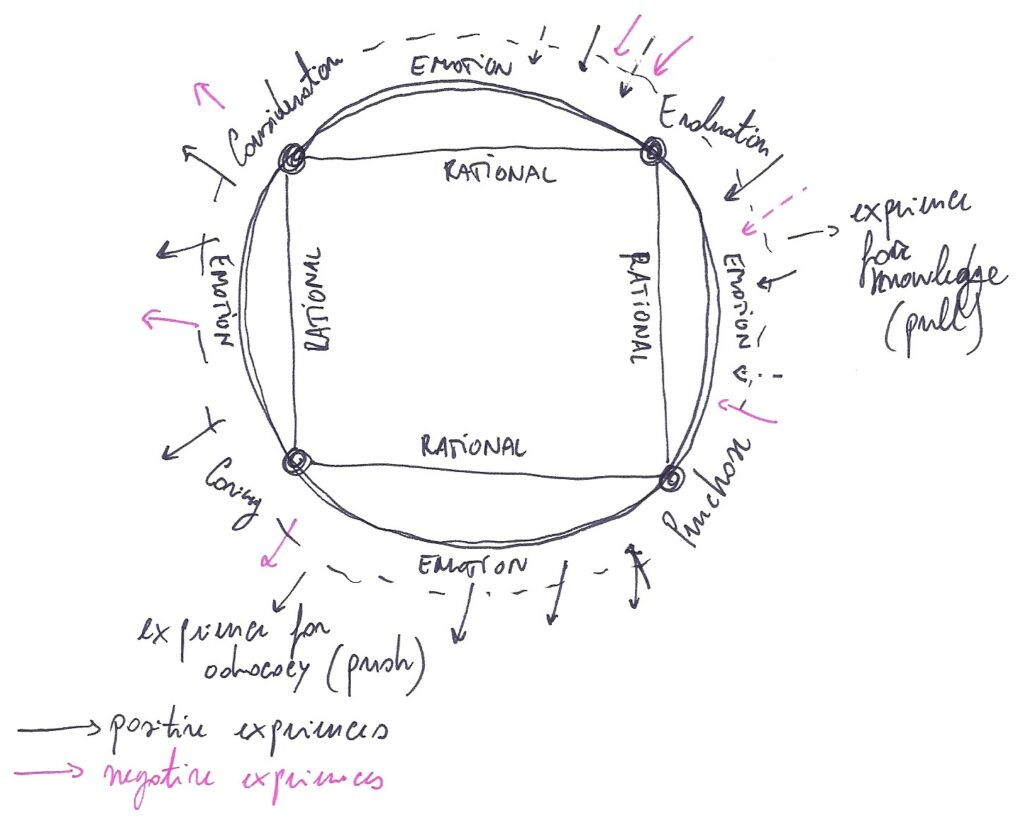 EMOTION
Consideration
Evaluation
RATIONAL
EMOTION
RATIONAL
RATIONAL
EMOTION
exprience
for
knowledge
(pull)
RATIONAL
Caring
Purchase
EMOTION
exprience for
advocacy (push)
positive expriences
negative expriences